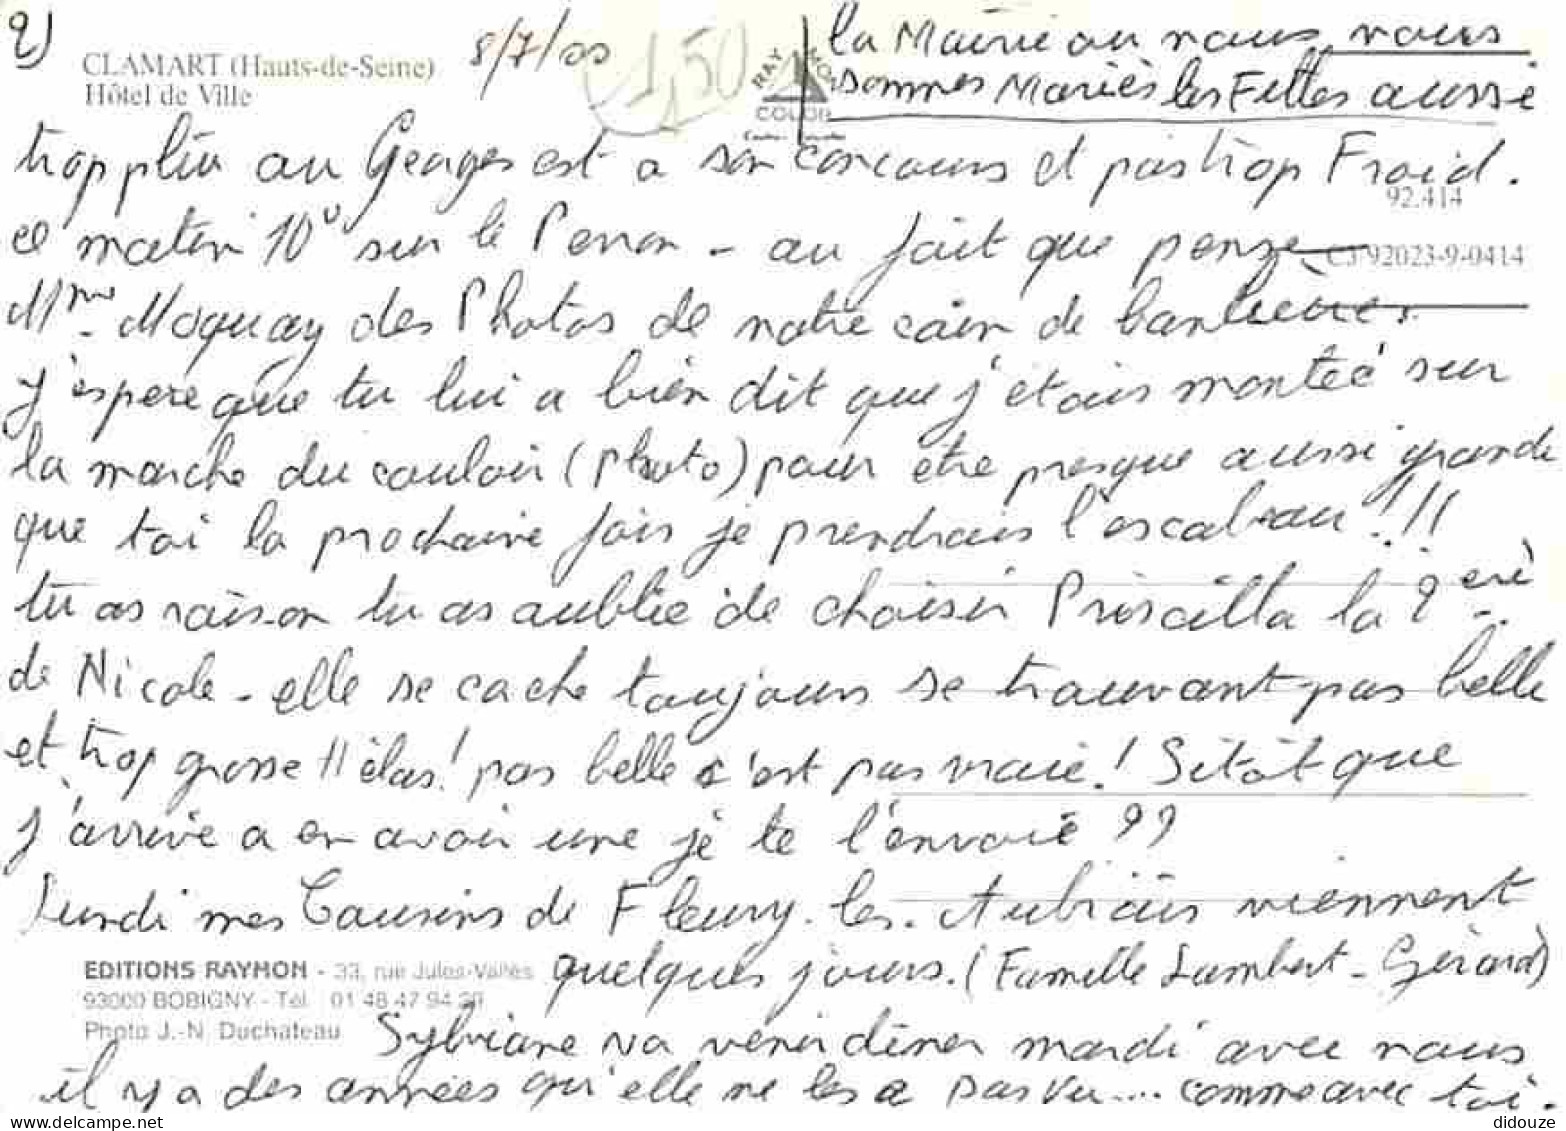 2)
8/7/00
1,50
la Mairie ou nous nous
sommes Mariès les Filles aussi
CLAMART (Hauts-de-Seine)
Hôtel de Ville
RAYMON
COLOR
trop plŭ ou Georges est a son concours et pas trop Froid.
92.414
ce matin 10° sur le Perron - au fait que pense
CJ 92023-9-0414
Mme Moquay des Photos de notre coin de banlieue.
J'espere que tu lui a bien dit que j'étais monteé sur
la marche du couloir (photo) pour etre presque aussi grande
que toi la prochaine fois je prendrais l'escabeau !!!
tu as raison tu as oublié de choisir Priscilla la 2 eme
de Nicole - elle se cache toujours se trouvant pas belle
et trop grosse Hélas! pas belle c'est pas vraie! Sitôt que
j'arrive a en avoir une je te l'envoie ??
Lundi mes Cousins de Fleury. les. Aubiais viennent
quelques jours. (Famille Lambert - Gérard)
EDITIONS RAYMON - 33, rue Jules-Vallès
93000 BOBIGNY - Tél. 01 48 47 94 20
Photo J.-N. Duchateau
Sylviane va venir diner mardi avec nous
il y a des années qu'elle ne les a pas vu.... comme avec toi.
delcampe.net
didouze